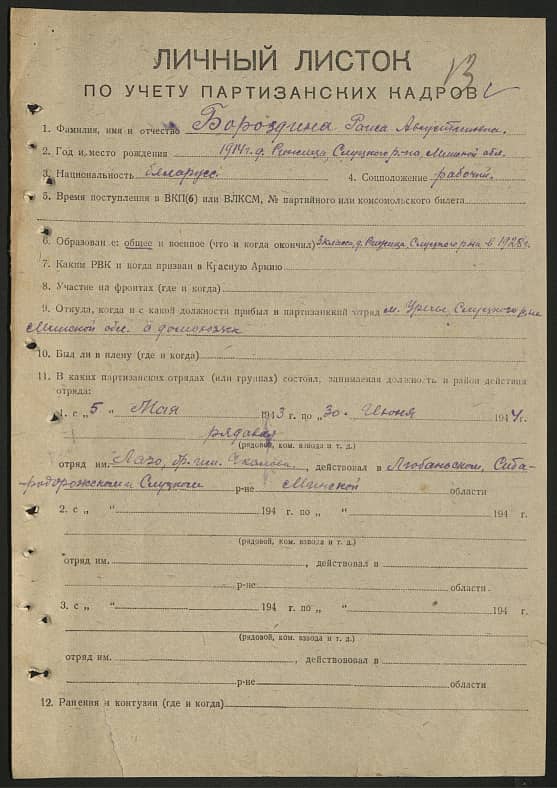 13
ЛИЧНЫЙ ЛИСТОК
ПО УЧЕТУ ПАРТИЗАНСКИХ КАДРОВ
1. Фамилия, имя и отчество Бороздина Раиса Августиновна.
2. Год и место рождения 1914 г. д. Слуцкого р-на Минской обл.
3. Национальность беларусс 4. Соцположение рабочий.
5. Время поступления в ВКП(б) или ВЛКСМ, № партийного или комсомольского билета
6. Образование: общее и военное (что и когда окончил) 3 класса, д. Слуцкого р-на в 1928 г.
7. Каким РВК и когда призван в Красную Армию
8. Участие на фронтах (где и когда)
9. Откуда, когда и с какой должности прибыл в партизанский отряд м. Уречье, Слуцкого р-на
Минской обл. домохозяйка
10. Был ли в плену (где и когда)
11. В каких партизанских отрядах (или группах) состоял, занимаемая должность и район действия
отряда:
1. с „5 “ Мая 1943 г. по „30 “ Июня 1944 г.
рядовая
(рядовой, ком. взвода и т. д.)
отряд им. Лазо, бр. им. Чкалова, действовал в Любаньском, Ста-
-родорожском и Слуцком р-не Минской области
2. с „ “ 194 г. по „ “ 194 г.
(рядовой, ком. взвода и т. д.)
отряд им. , действовал в
р-не области.
3. с „ “ 194 г. по „ “ 194 г.
(рядовой, ком. взвода и т. д.)
отряд им. , действововал в
р-не области
12. Ранения и контузии (где и когда)